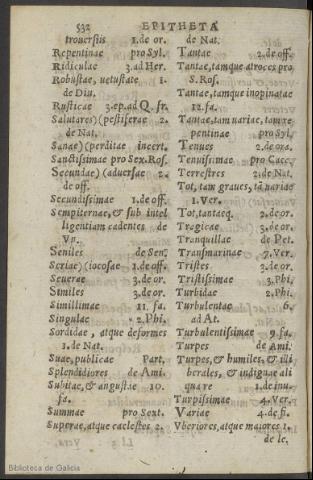 532 EPITHETA
trouersiis 1.de or.
Repentinae pro Syl.
Ridiculae 3.ad Her.
Robustae, uetustate 1.
de Diu.
Rusticae 3.ep.ad Q. fr.
Salutares) (pestiferae 2.
de Nat.
Sanae) (perditae incert.
Sanctissimae pro Sex.Ros.
Secundae) (aduersae 2.
de off.
Secundissimae 1.de off.
Sempiternae, & sub intel
ligentiam cadentes de
Vn.
Seniles de Sen.
Seriae) (iocosae 1.de off.
Seuerae 3.de or.
Similes 3.de or.
Simillimae 11. fa.
Singulae 2.Phi.
Sordidae, atque deformes
1.de Nat.
Suae, publicae Part.
Splendidiores de Ami.
Subitae, & angustae 10.
fa.
Summae pro Sext.
Superae, atque caelestes 2.
de Nat.
Tantae 2.de off.
Tantae, tamque atroces pro
S. Ros.
Tantae, tamque inopinatae
12.fa.
Tantae, tam uariae, tam re
pentinae pro Syl.
Tenues 2.de ora.
Tenuissimae pro Caec.
Terrestres 2.de Nat.
Tot, tam graues, tā uariae
1.Ver.
Tot, tantaeq. 2.de or.
Tragicae 3.de or.
Tranquillae de Pet.
Transmarinae 7.Ver.
Tristes 3.de or.
Tristissimae 3.Phi.
Turbidae 2.Phi.
Turbulentae 6.
ad At.
Turbulentissimae 9.fa.
Turpes de Ami.
Turpes, & humiles, & illi
berales, & indignae ali
quare 1.de inu.
Turpissimae 4.Ver.
Variae 4.de fi.
Vberiores, atque maiores 1.
de le.
Biblioteca de Galicia